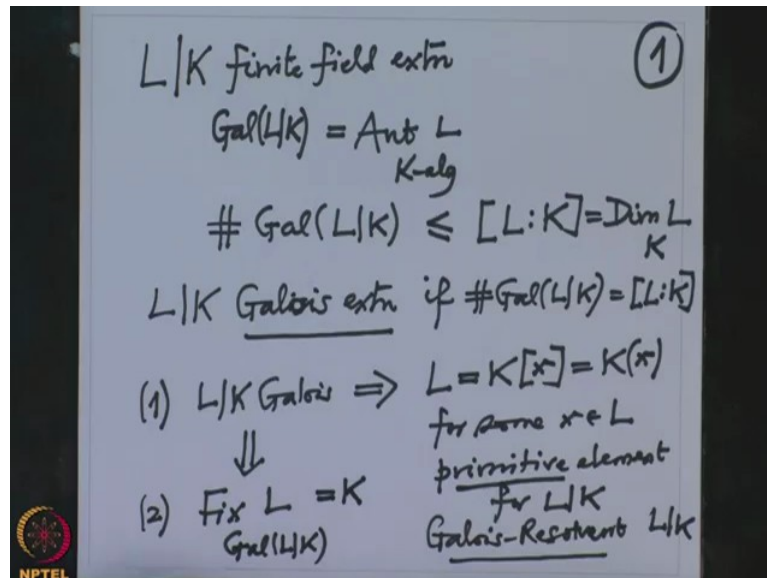 L|K finite field extn
①
Gal(L|K) = Aut L
K-alg
# Gal(L|K) ≤ [L:K] = Dim L
K
L|K Galois extn if #Gal(L|K) = [L:K]
(1) L|K Galois ⇒ L = K[x] = K(x)
for some x ∈ L
⇓
primitive element
(2) Fix L = K
for L|K
Gal(L|K)
Galois-Resolvent L|K
NPTEL